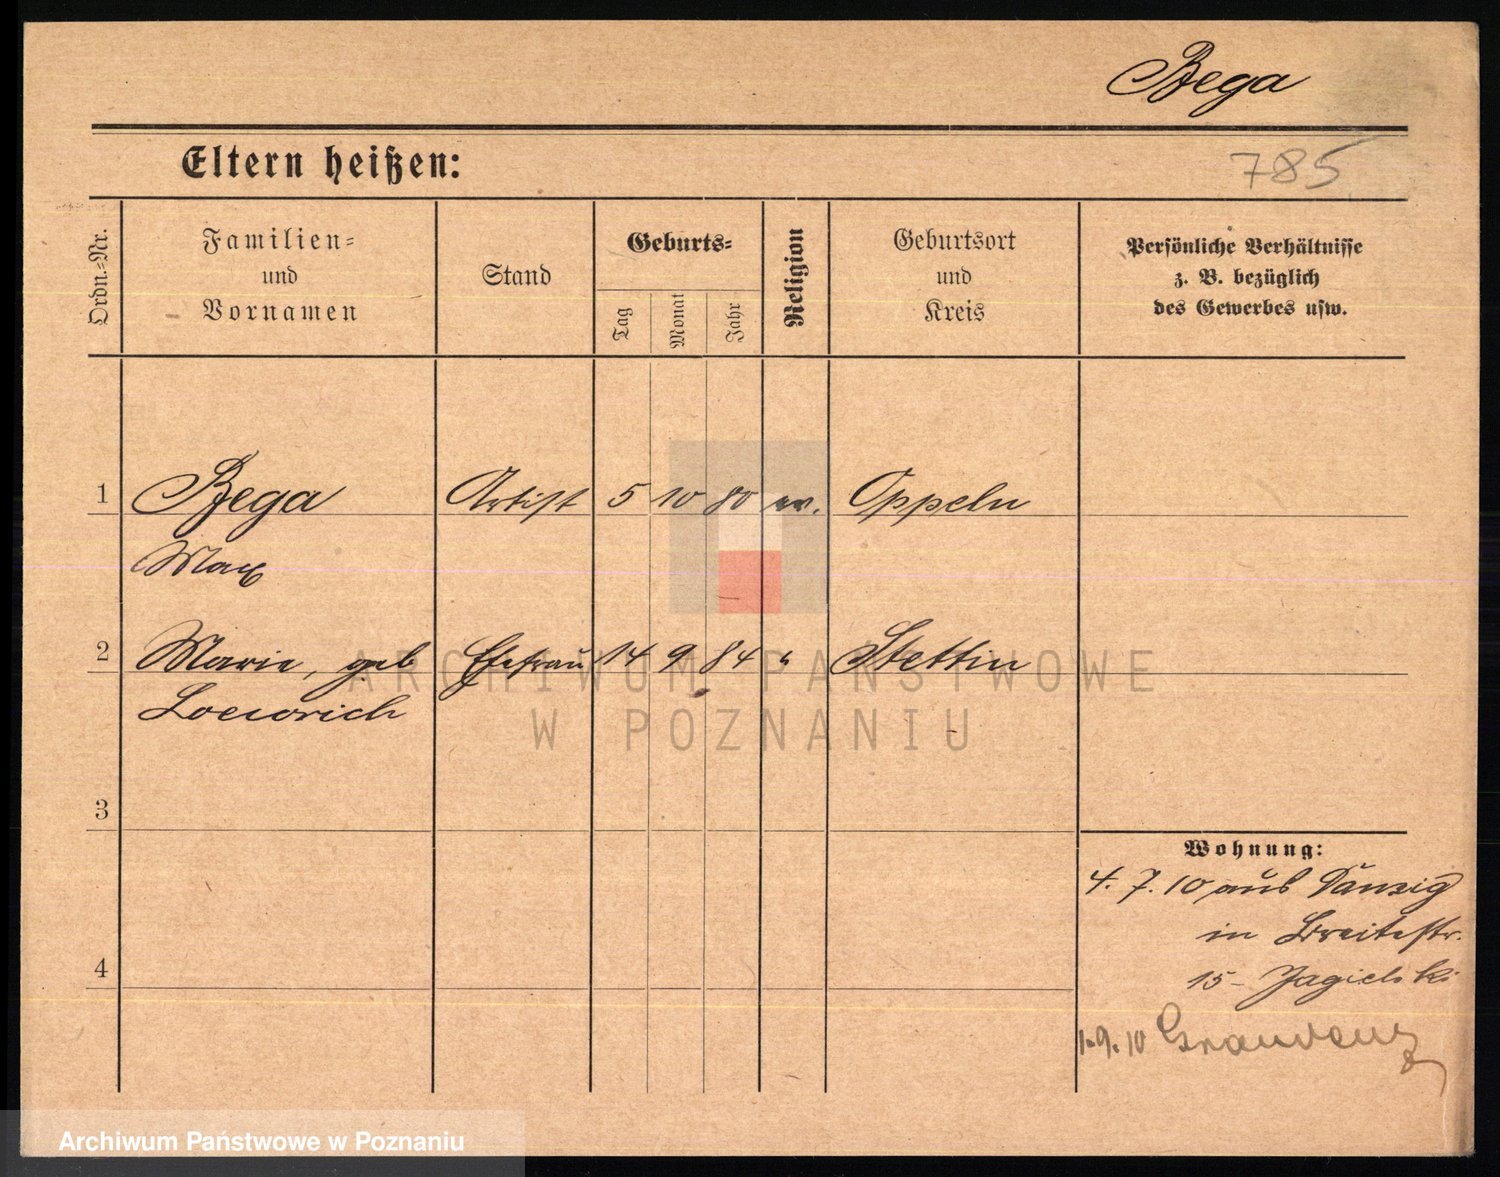 Bega
Eltern heißen:
785
Ordn.-Nr.
Familien-
und
Vornamen
Stand
Geburts-
Tag
Monat
Jahr
Religion
Geburtsort
und
Kreis
Persönliche Verhältnisse
z. B. bezüglich
des Gewerbes usw.
1 Bega Artist 5 10 80 ev. Oppeln
Max
2 Marie, geb Ehefrau 14 9 84 " Stettin
ARCHIWUM PAŃSTWOWE
W POZNANIU
3
Wohnung:
4. 7. 10 aus Danzig
in Breitestr.
15 - Jagielski
4
1.9.10 Graudenz
Archiwum Państwowe w Poznaniu